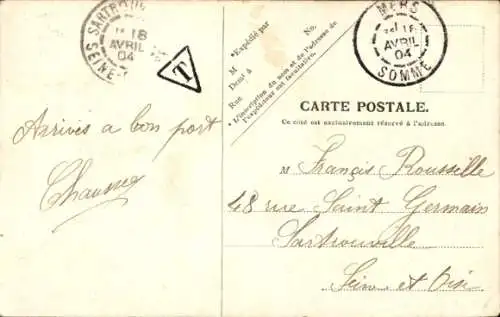 SARTROUV
18
AVRIL
04
SEINE
T
*Expédié par
No.
M
Demt à
Rue
* L'inscription du nom et de l'adresse de
l'expéditeur est facultative.
MERS
18
AVRIL
04
SOMME
CARTE POSTALE.
Ce côté est exclusivement réservé à l'adresse.
Arrivés a bon port
M François Rousselle
48 rue Saint Germain
Sartrouville
Seine et Oise